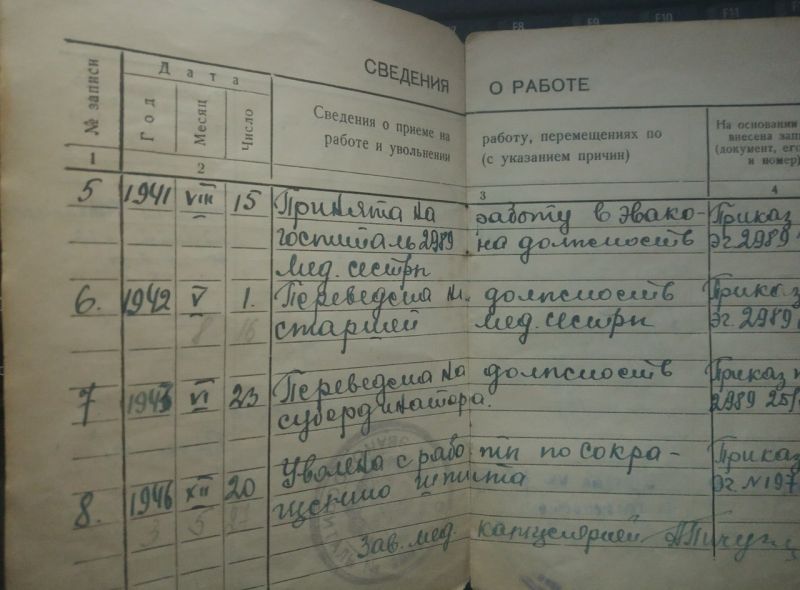 F8 F9 F10 F11
СВЕДЕНИЯ О РАБОТЕ
№ записи
Дата
Год
Месяц
Число
Сведения о приеме на работу, перемещениях по
работе и увольнении (с указанием причин)
На основании
внесена зап
(документ, ег
и номер)
1 2 3 4
5 1941 VIII 15 Принята на работу в эвако- Приказ
госпиталь 2989 на должность эг. 2989
мед. сестры
6. 1942 V 1. Переведена на должность Приказ
старшей мед. сестры эг. 2989
7 1943 VI 23 Переведена на должность Приказ
субординатора. 2989 25/
8. 1946 XII 20 Уволена с работы по сокра- Приказ
щению штата эг. №197
Зав. мед. канцелярией